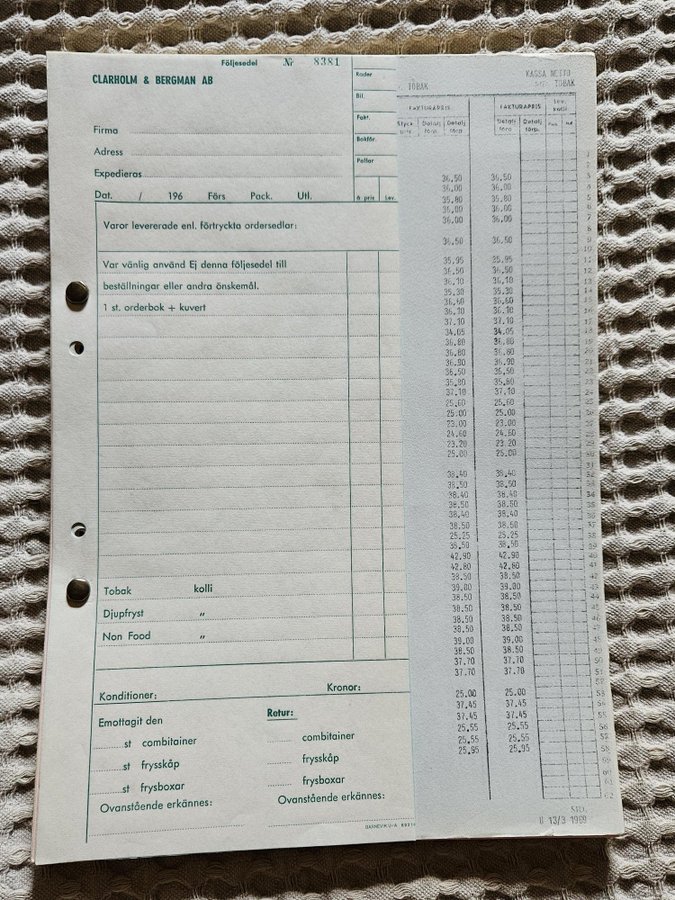 Följesedel Nr 8381
CLARHOLM & BERGMAN AB
Firma
Adress
Expedieras
Dat. / 196 Förs Pack. Utl.
Rader
Bil.
Fakt.
Bokför.
Pallar
à pris Lev.
Varor levererade enl. förtryckta ordersedlar:
Var vänlig använd Ej denna följesedel till
beställningar eller andra önskemål.
1 st. orderbok + kuvert
Tobak kolli
Djupfryst "
Non Food "
Konditioner: Kronor:
Emottagit den Retur:
st combitainer combitainer
st frysskåp frysskåp
st frysboxar frysboxar
Ovanstående erkännes: Ovanstående erkännes:
KASSA NETTO
TOBAK TOBAK
FAKTURAPRIS FAKTURAPRIS Lev.
Detalj Detalj
förp. förp.
36.50 36.50
36.00 36.00
35.80 35.80
36.00 36.00
36.50 36.50
36.50 36.50
36.10 36.10
35.30 35.30
36.60 36.60
36.10 36.10
37.10 37.10
34.05 34.05
36.80 36.80
36.80 36.80
36.90 36.90
36.50 36.50
35.80 35.80
37.10 37.10
25.60 25.60
25.00 25.00
23.00 23.00
24.60 24.60
23.20 23.20
25.00 25.00
38.40 38.40
38.50 38.50
38.40 38.40
38.50 38.50
38.40 38.40
38.50 38.50
25.25 25.25
38.50 38.50
42.90 42.90
42.80 42.80
38.50 38.50
39.00 39.00
38.50 38.50
38.50 38.50
38.50 38.50
39.00 39.00
38.50 38.50
37.70 37.70
37.70 37.70
25.00 25.00
37.45 37.45
37.45 37.45
25.55 25.55
25.55 25.55
25.95 25.95
13/3 1969